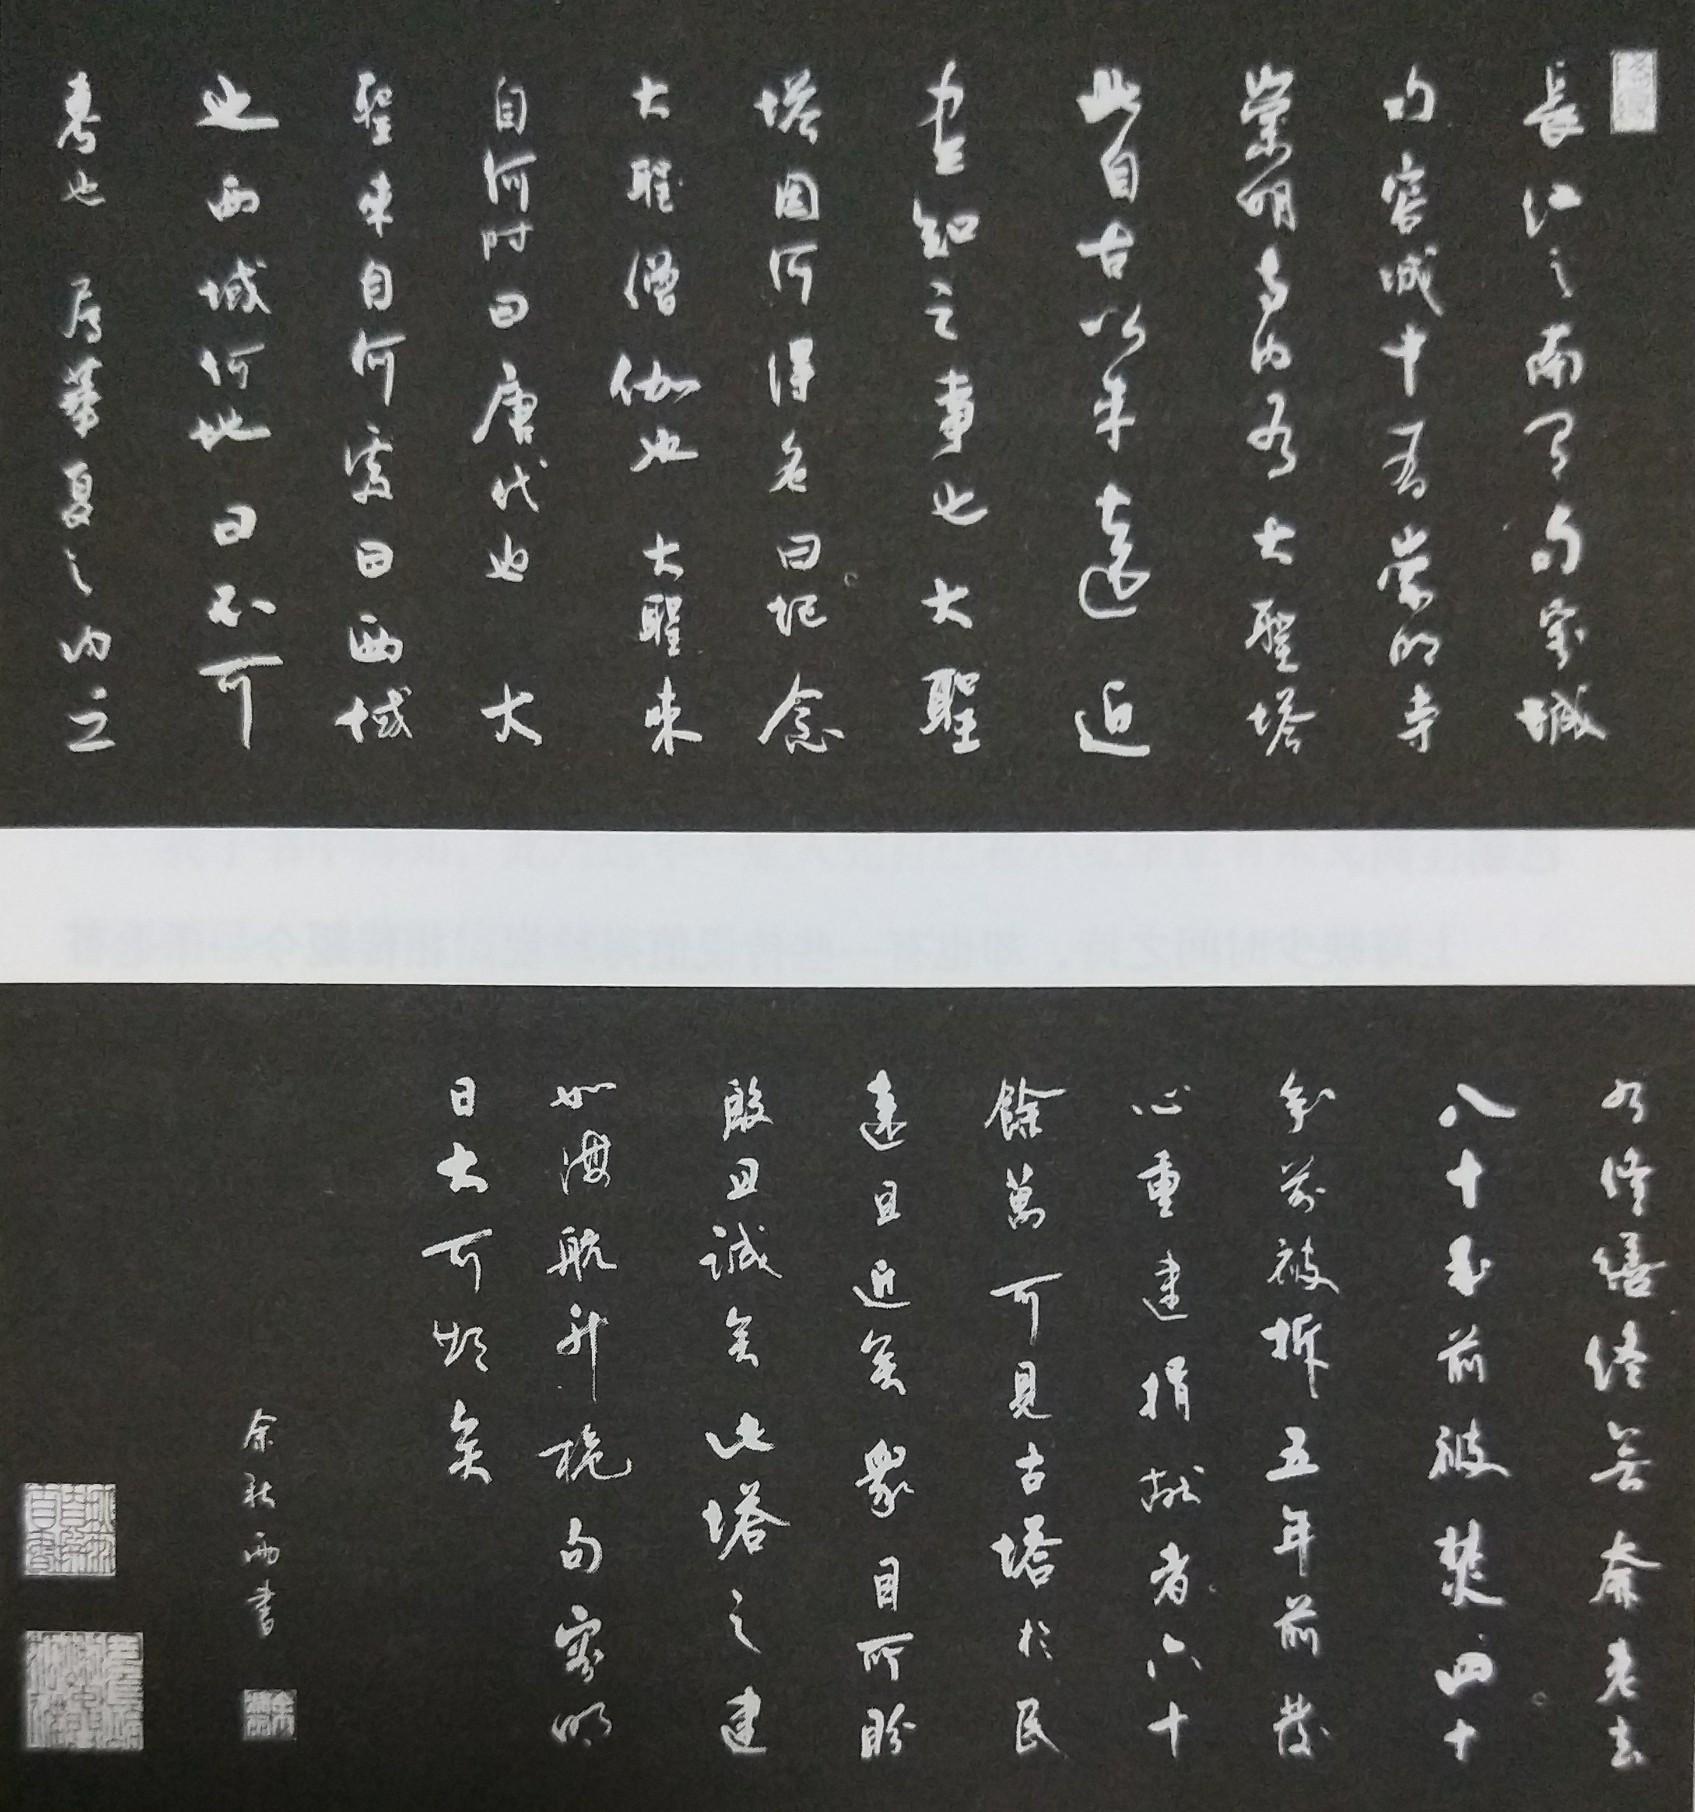 長江之南有句容城
句容城中有崇明寺
崇明寺内有大聖塔
此自古以來遠近
皆知之事也大聖
塔因何得名曰記念
大聖僧伽也大聖來
自何時曰唐代也大
聖來自何處曰西域
也西域何地曰不可
考也屬華夏之内
修繕終無奈老去
八十年前被焚四十
年前被拆五年前發
心重建捐獻者六十
餘萬可見古塔於民
遠且近矣眾目所盼
殷且誠矣此塔之建
如海航升桅句容明
日大可期矣
余秋雨書